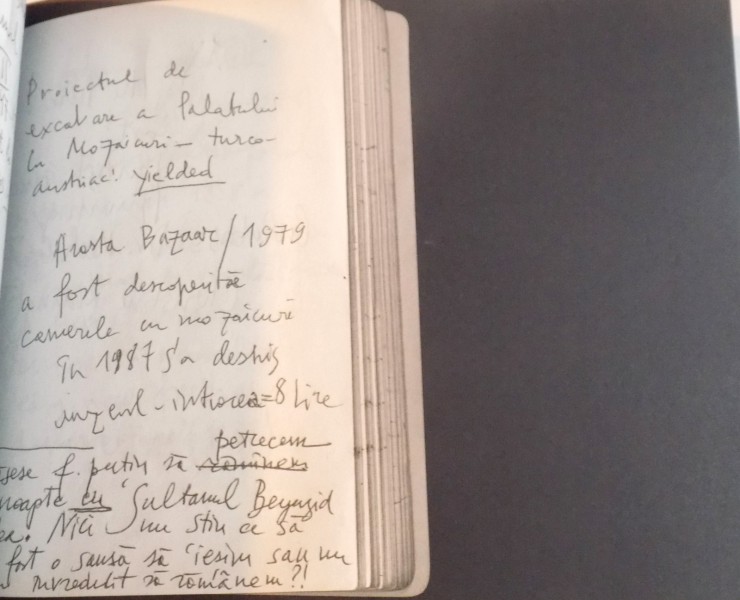 Proiectul de
excavare a Palatului
cu Mozaicuri – turco-
austriac: yielded
Arasta Bazaar / 1979
a fost descoperită
camerele cu mozaicuri
În 1987 s'a deshis
muzeul – intrarea = 8 Lire
petrecem
f. puțin să rămînem
noapte cu Sultanul Beyazid
Nici nu știu ce să
fost o șansă să ieșim sau nu
să românem?!